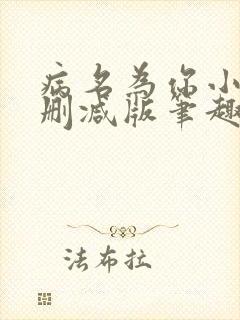 病名为你小
删减版笔趣
法布拉